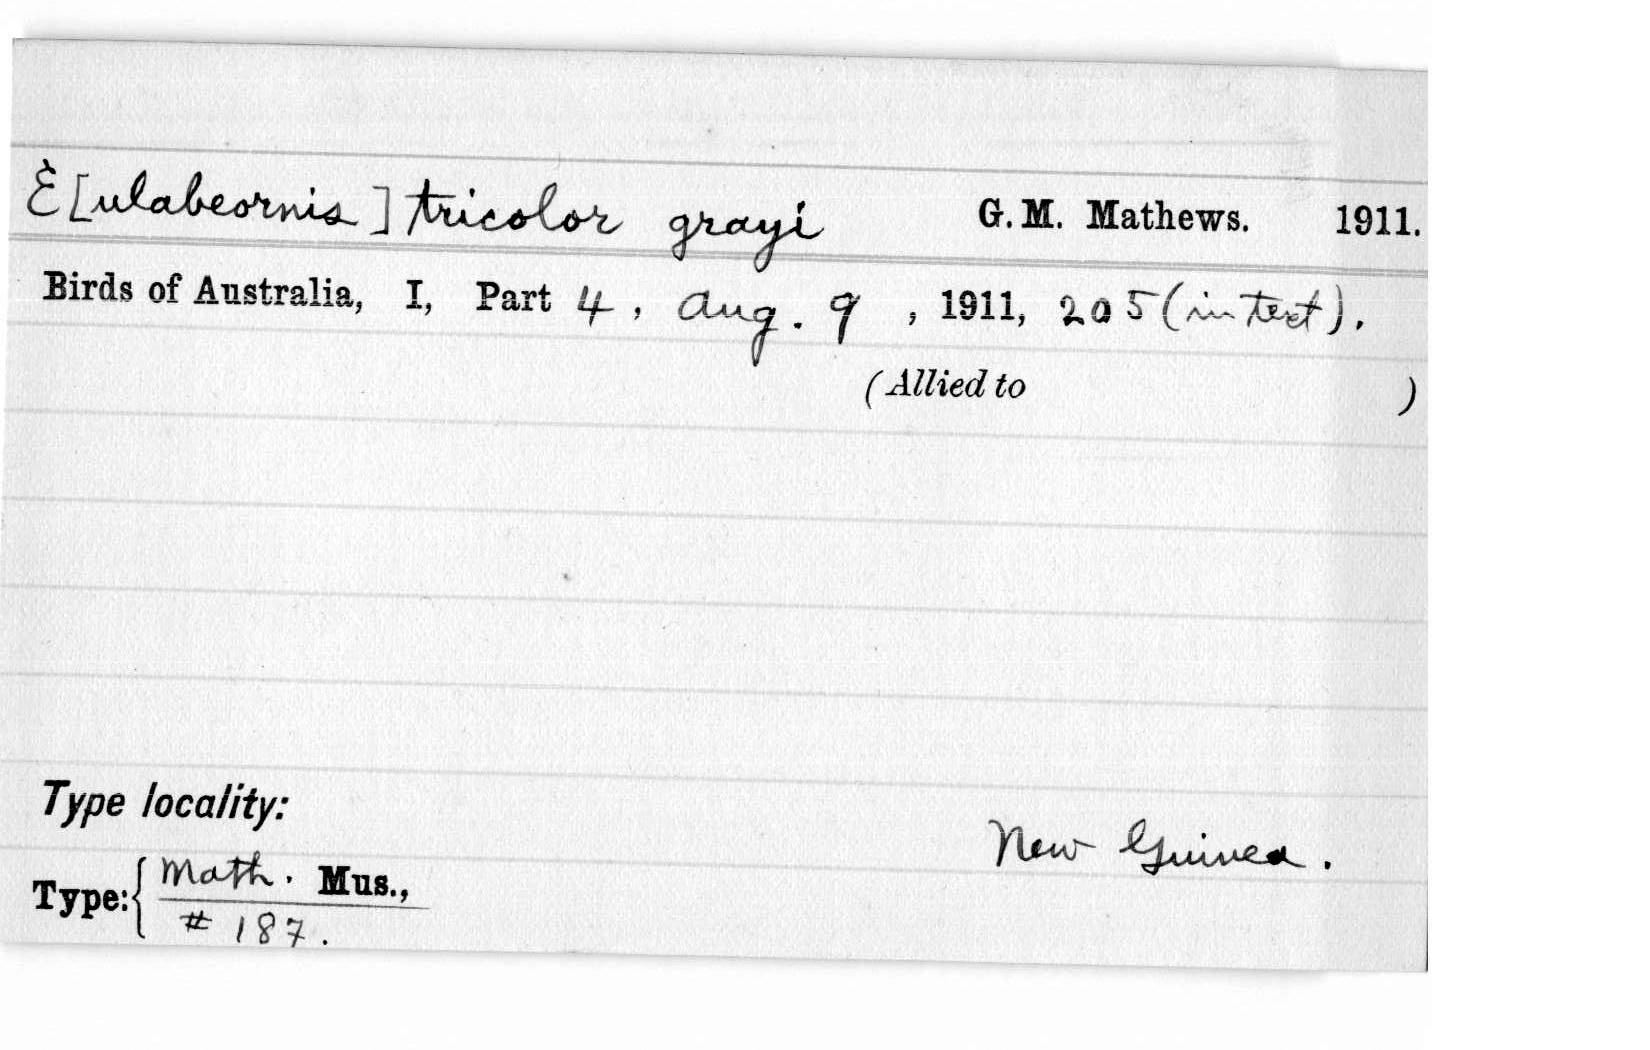 E[ulabeornis] tricolor grayi G. M. Mathews. 1911.
Birds of Australia, I, Part 4, Aug. 9, 1911, 205 (in text).
(Allied to )
Type locality:
New Guinea.
Type: { Math. Mus.,
# 187.